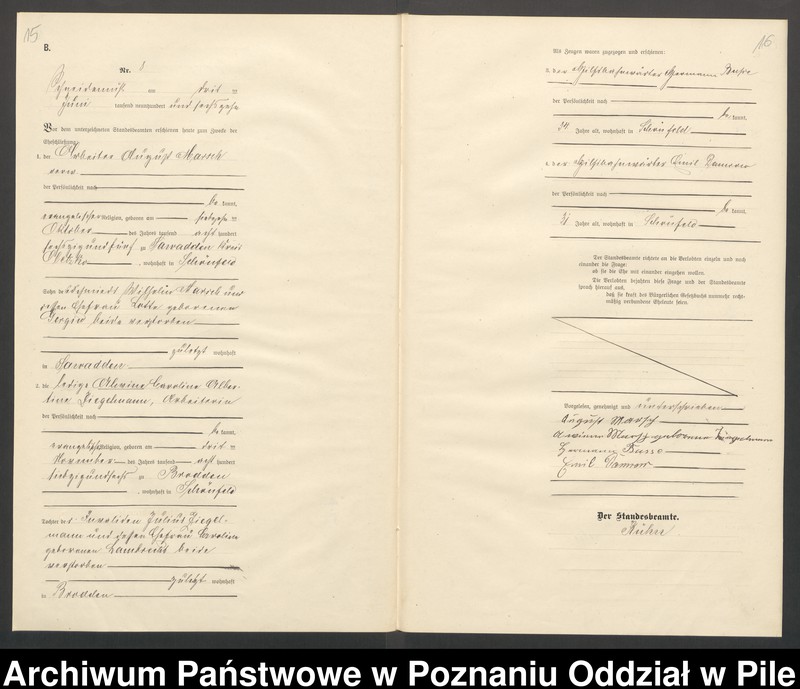 15
B.
Nr. 8
Schneidemühl am
Juni tausend neunhundert und sechszehn
Vor dem unterzeichneten Standesbeamten erschienen heute zum Zwecke der
Eheschließung:
1. der Arbeiter August Marsch
der Persönlichkeit nach
be kannt,
evangelischer Religion, geboren am
Oktober des Jahres tausend acht hundert
sechszigundfünf zu Sawadden Kreis
, wohnhaft in Schönfeld
Sohn des Wilhelm Marsch und
dessen Ehefrau Lotte geborenen
beide verstorben
zuletzt wohnhaft
in Sawadden
2. die ledige Alwine Caroline Alber-
tine Ziegelmann, Arbeiterin
der Persönlichkeit nach
be kannt,
evangelischer Religion, geboren am
November des Jahres tausend acht hundert
siebzigundsechs zu Brodden
, wohnhaft in Schönfeld
Tochter des Invaliden Julius Ziegel-
mann und dessen Ehefrau Caroline
geborenen Lambrecht beide
verstorben
zuletzt wohnhaft
in Brodden
16
Als Zeugen waren zugezogen und erschienen:
3. der Hilfsbahnwärter Hermann Busse
der Persönlichkeit nach
be kannt,
34 Jahre alt, wohnhaft in Schönfeld
4. der Hilfsbahnwärter Emil
der Persönlichkeit nach
be kannt,
31 Jahre alt, wohnhaft in Schönfeld
Der Standesbeamte richtete an die Verlobten einzeln und nach
einander die Frage:
ob sie die Ehe mit einander eingehen wollen.
Die Verlobten bejahten diese Frage und der Standesbeamte
sprach hierauf aus,
daß sie kraft des Bürgerlichen Gesetzbuchs nunmehr recht-
mäßig verbundene Eheleute seien.
Vorgelesen, genehmigt und unterschrieben
August Marsch
Alwine Marsch geborene Ziegelmann
Hermann Busse
Emil
Der Standesbeamte.
Archiwum Państwowe w Poznaniu Oddział w Pile